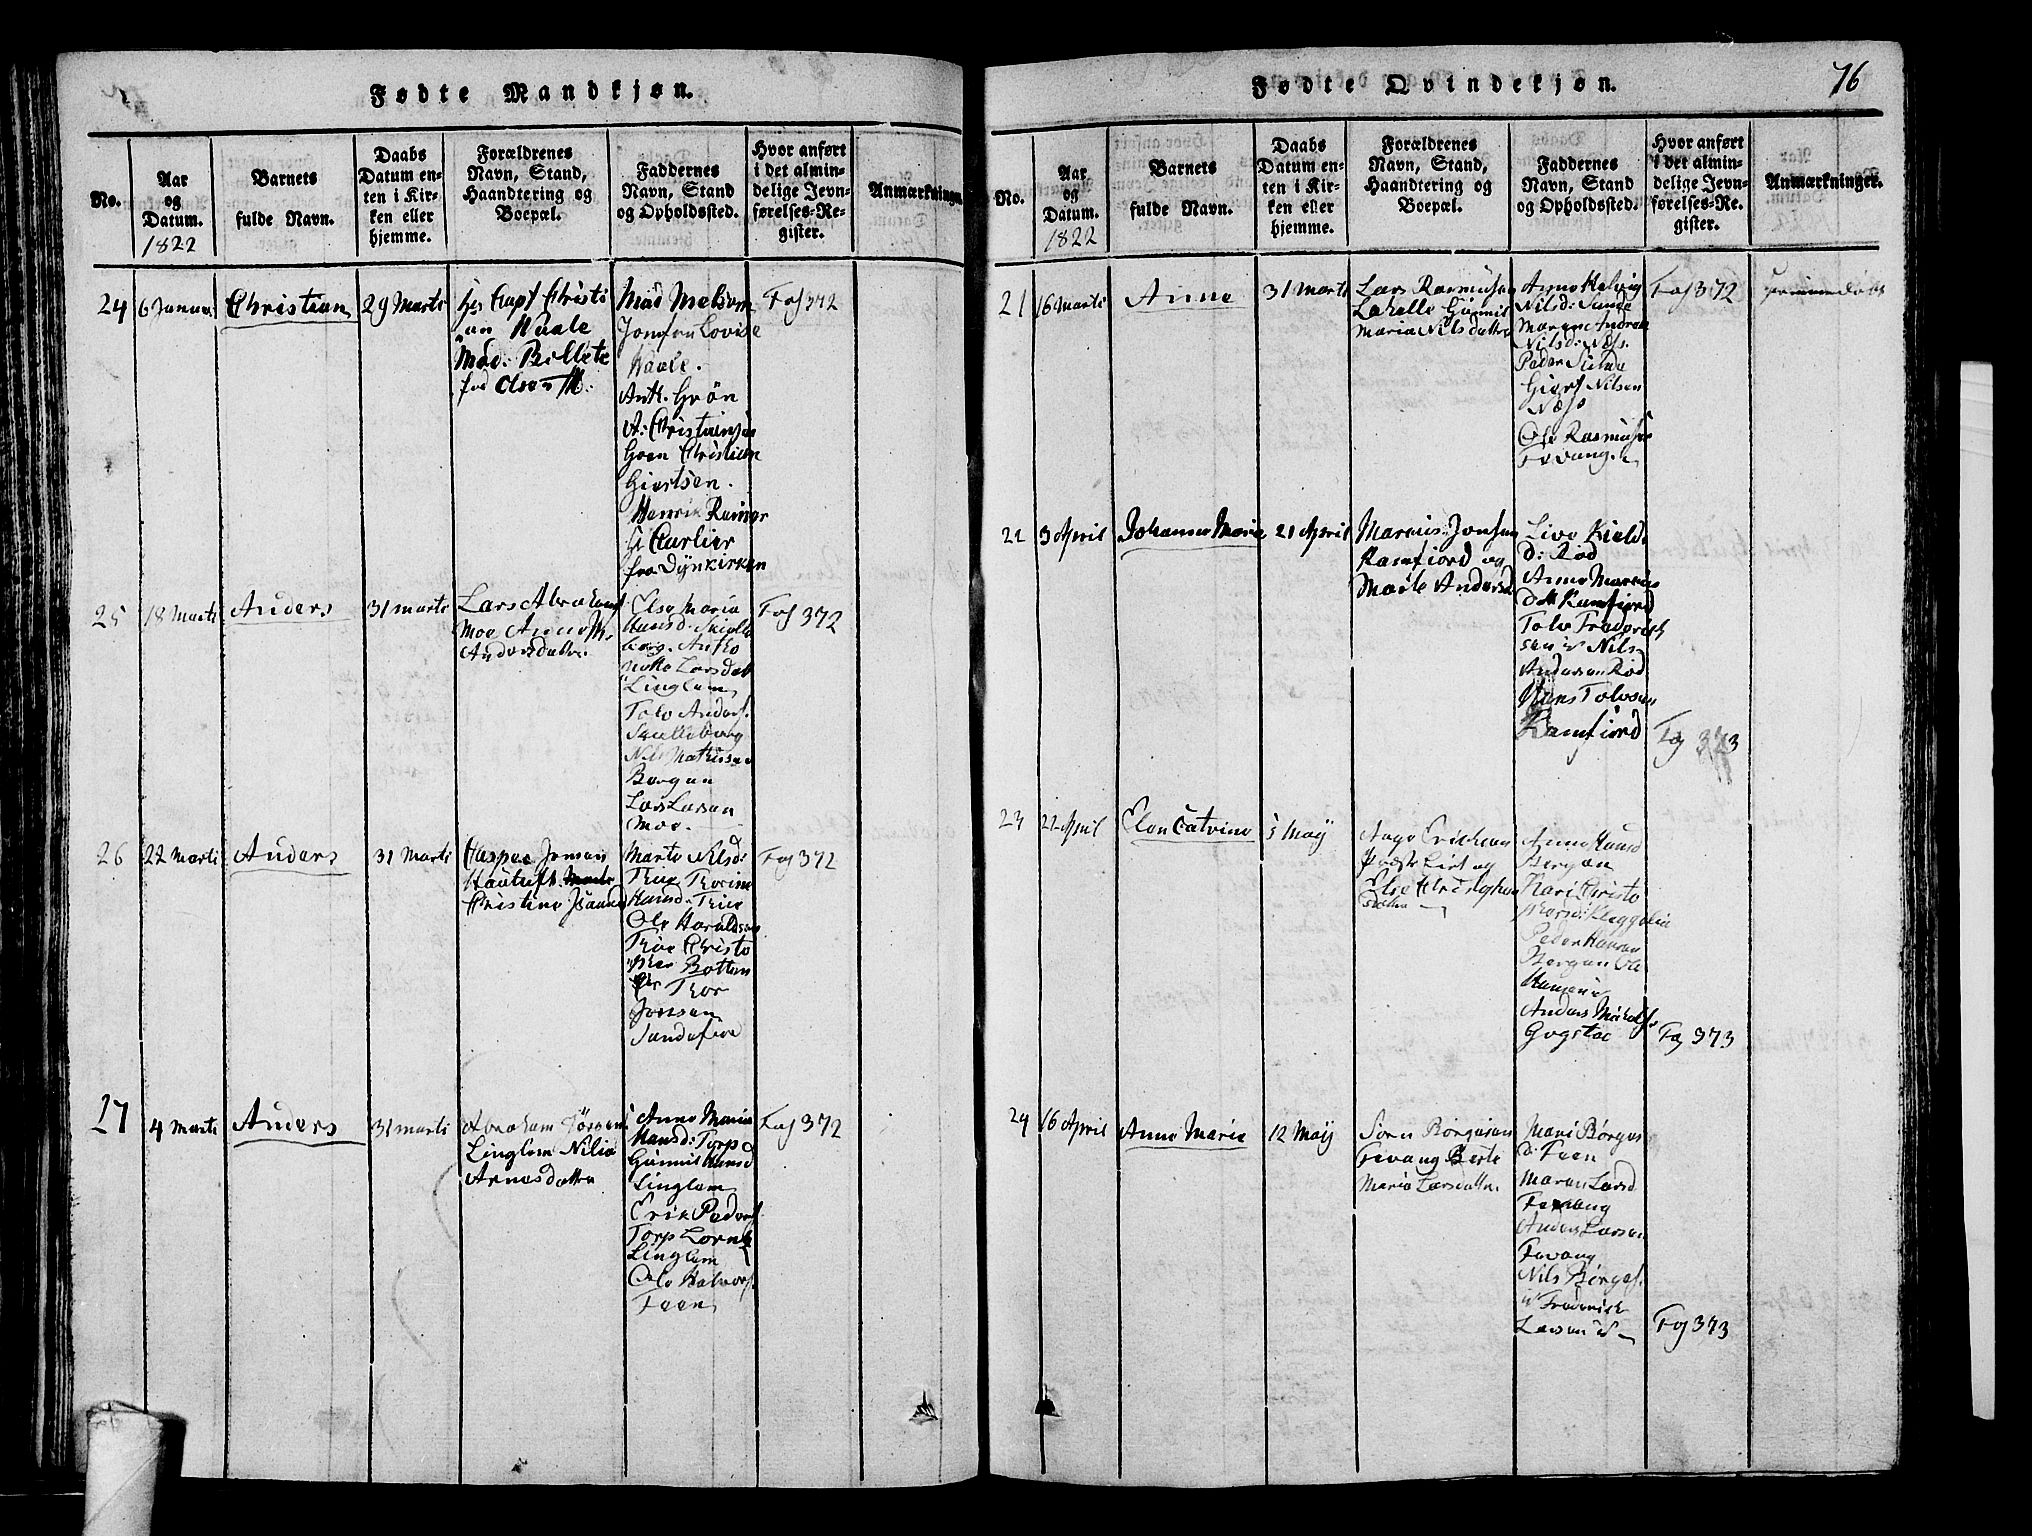 Fødte Mandkjøn.
No.
Aar
og
Datum.
1822
Barnets
fulde Navn.
Daabs
Datum en-
ten i Kir-
ken eller
hjemme.
Forældrenes
Navn, Stand,
Haandtering og
Boepæl.
Faddernes
Navn, Stand
og Opholdssted.
Hvor anført
i det almin-
delige Jevn-
førelses-Re-
gister.
Anmærkninger
24
6 Januar
Christian
29 Marts
Hr Capt Christi
an Waale
Mad: Billete
fød Olsen
Mad Melsom
Jomfru Lovise
Waale.
Ant. Grön
A: Christiansen
Goen Christian
Giertsen.
Henrik Reimer
Carlier
fra Dynkirken
Fol 372
25
18 Marts
Anders
31 marts
Lars Abrahams
Moe Anne M
Andersdatter
Else Maria
Hansd: Skielle
berg. Anto
nette Larsdat
Linglem
Tolv Anders.
Skielleberg
Nils Mathisen
Bergan
Lars Larsen
Moe.
Fol 372
26
22 Marts
Anders
31 Marts
Jonsen
Hautuft
Christine
Marte Nilsd:
Thorine
Hansd:
Ole Haraldsen
Christo
pher Botten
Thor
Jonsen
Sandefior
Fol 372
27
4 Marts
Anders
31 marts
Abraham Jörgens
Linglem Nilia
Arnesdatter
Anne Maria
Hansd: Torp
Gunnil Hansd
Linglem
Erik Peders
Torp
Linglem
Ole Halvors.
Feen
Fol 372
Fødte Qvindekjøn.
76
No.
Aar
og
Datum.
1822
Barnets
fulde Navn.
Daabs
Datum en-
ten i Kir-
ken eller
hjemme.
Forældrenes
Navn, Stand,
Haandtering og
Boepæl.
Faddernes
Navn, Stand
og Opholdssted.
Hvor anført
i det almin-
delige Jevn-
førelses-Re-
gister.
Anmærkninger.
21
16 Marts
Anne
31 Marts
Lars Rasmusen
Gunnil
Maria Nilsdatter
Anne Helvig
Nilsd: Sunde
Maren Andrea
Nilsd: Næss.
Peder Sunde
Giert Nilsen
Næss
Ole Rasmusen
Fevang.
Fol 372
22
3 April
Johanne Marie
21 April
Marcus: Jonsen
Ramfiord og
Marte Andersd
Live Kield
d: Röd
Anne Marcus
dat Ramfiord
Tolv Frederich
sen Nils
Andersen Röd
Hans Tolvsen
Ramfiord
Fol 373
23
22 April
Elen Catrine
5 May
Aage Erichsen
og
Else
Anne Hansd
Bergan
Kari Christo
phersd:
Peder Hansen
Bergan
Anders Mikels.
Gogstad
Fol 373
24
16 April
Anne Marie
12 May
Sören Börgesen
Fevang Berte
Maria Larsdatter
Mari Börges
d: Feen
Maren Larsd
Fevang
Anders Larsen
Fevang
Nils Börges.
Frederich
Larsen
Fol 373